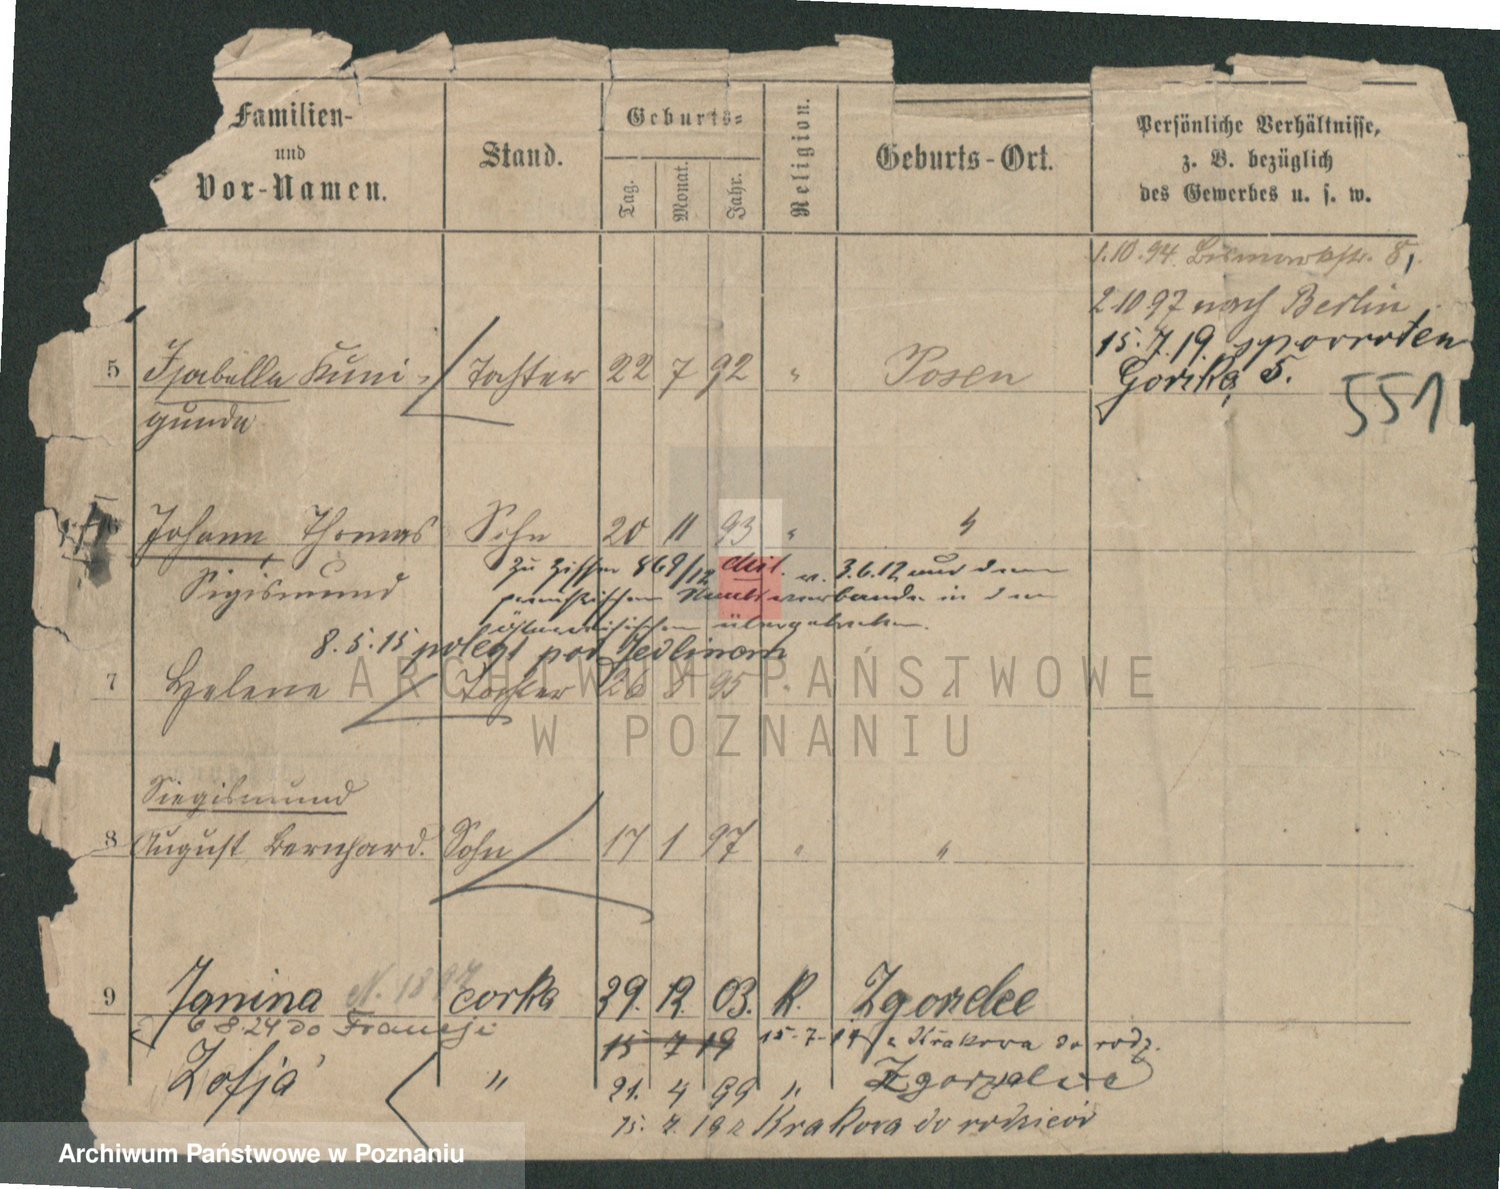 Familien-
und
Vor-Namen.
Stand.
Geburts-
Tag.
Monat.
Jahr.
Religion.
Geburts-Ort.
Persönliche Verhältnisse,
z. B. bezüglich
des Gewerbes u. s. w.
1.10.94. Bismarckstr. 8,
2 10 97 nach Berlin
15.7.19. spowroten
Gorzka, 5.
551
5 Isabella Kuni- Tochter 22 7 92 " Posen
gunda
6 Johann Thomas Sohn 20 11 93 " "
Sigismund
zu Ziffer 869/12 v. 3.6.12 aus dem
preußischen Staatsverbande in den
österreichischen übergetreten.
8.5.15 poległ pod Jedlinom
7 Helene Tochter 26 8 95 " "
Siegismund
8 August Bernhard. Sohn 17 1 97 " "
9 Janina N. 1897 corka 29. 12. 03. K. Zgorzelce
6 8 24 do Francji
15 7 19 15-7-19 z Krakowa do rodz.
Zofja " 21. 4 99 " Zgorzelce
15. 7. 19 z Krakowa do rodziców
ARCHIWUM PAŃSTWOWE
W POZNANIU
Archiwum Państwowe w Poznaniu